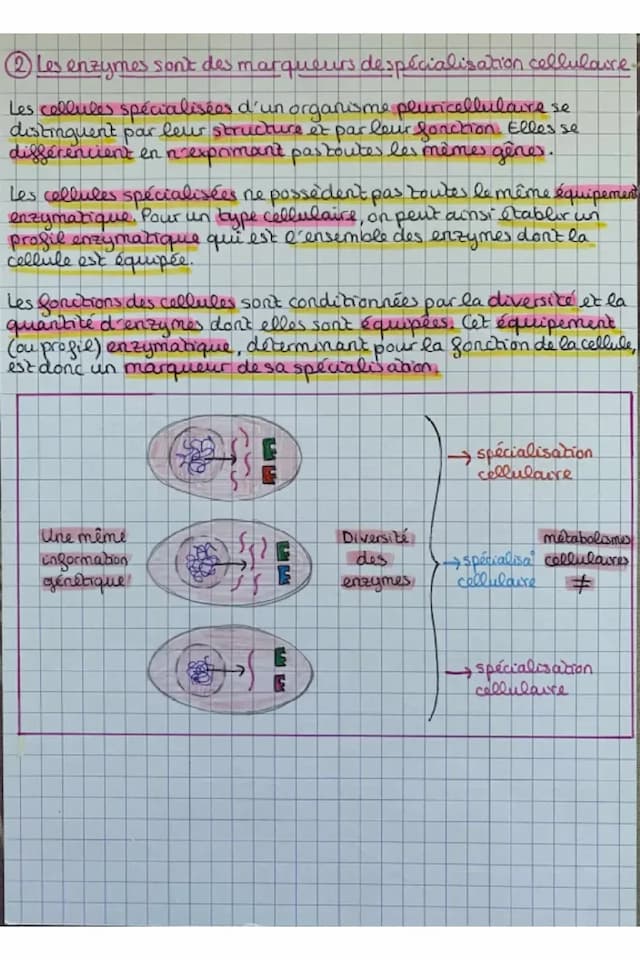 ② Les enzymes sont des marqueurs de spécialisation cellulaire
Les cellules spécialisées d'un organisme pluricellulaire se
distinguent par leur structure et par leur fonction. Elles se
différencient en n'exprimant pas toutes les mêmes gènes.
Les cellules spécialisées ne possèdent pas toutes le même équipement
enzymatique. Pour un type cellulaire, on peut ainsi établir un
profil enzymatique qui est l'ensemble des enzymes dont la
cellule est équipée.
Les fonctions des cellules sont conditionnées par la diversité et la
quantité d'enzymes dont elles sont équipées. Cet équipement
(ou profil) enzymatique, déterminant pour la fonction de la cellule,
est donc un marqueur de sa spécialisation.
→ spécialisation
cellulaire
Une même
information
génétique
Diversité
des
enzymes
→ spécialisa°
cellulaire
métabolismes
cellulaires
≠
→ spécialisation
cellulaire